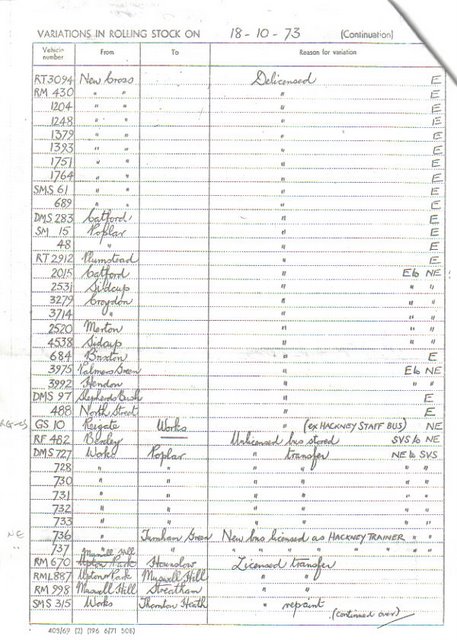 VARIATIONS IN ROLLING STOCK ON 18-10-73 (Continuation)
Vehicle number From To Reason for variation
RT3094 New Cross Delicensed E
RM 430 " " " E
1204 " " " E
1248 " " " E
1379 " " " E
1393 " " " E
1751 " " " E
1764 " " " E
SMS 61 " " " E
689 " " " E
DMS 283 Catford " E
SM 15 Poplar " E
48 " " E
RT 2912 Plumstead " E
2015 Catford " E to NE
2531 Sidcup " " "
3279 Croydon " " "
3714 " " " "
2520 Merton " " "
4538 Sidcup " " "
684 Brixton " E
3975 Palmers Green " E to NE
3992 Hendon " " "
DMS 97 Shepherds Bush " E
488 North Street " E
GS 10 Reigate Works " (ex HACKNEY STAFF BUS) NE
RF 482 Bexley Unlicensed bus stored SVS to NE
DMS 727 Works Poplar " transfer NE to SVS
728 " " " " " "
730 " " " " " "
731 " " " " " "
732 " " " " " "
733 " " " " " "
NE 736 " Turnham Green New bus licensed as HACKNEY TRAINER " "
" 737 Muswell Hill " " " " " " " "
RM 670 Upton Park Hounslow Licensed transfer
RML 887 Upton Park Muswell Hill " "
RM 998 Muswell Hill Streatham " "
SMS 315 Works Thornton Heath " repaint
(continued over)
403/69 (2) (196 6/71 508)